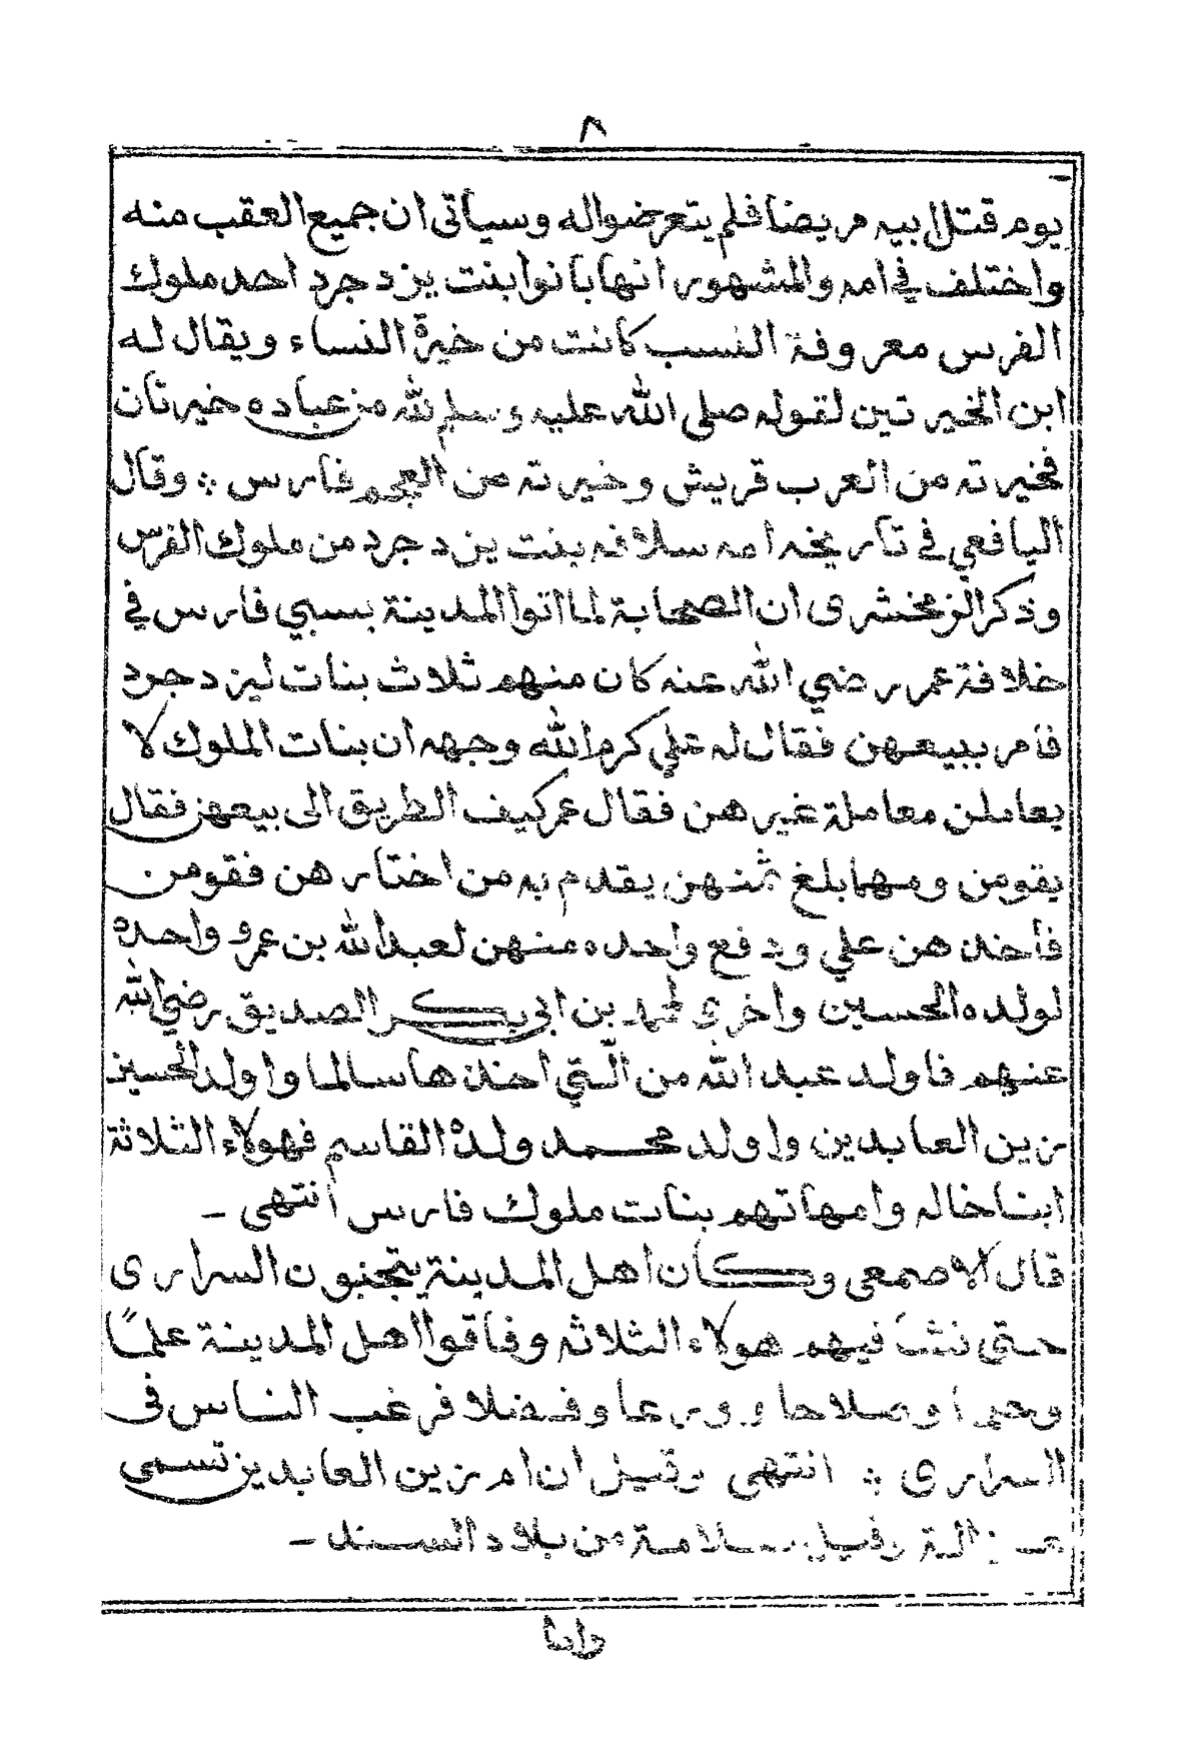 ٨
يوم قتل ابيه مريضا فلم يتعرضوا له وسيأتى ان جميع العقب منه
واختلف في امه والمشهور انها بانوا بنت يزدجرد احد ملوك
الفرس معروفة النسب كانت من خيرة النساء ويقال له
ابن الخيرتين لقوله صلى الله عليه وسلم لله من عباده خيرتان
فخيرته من العرب قريش وخيرته من العجم فارس ⁘ وقال
اليافعي في تاريخه امه سلافه بنت يزدجرد من ملوك الفرس
وذكر الزمخشرى ان الصحابة لما اتوا المدينة بسبي فارس في
خلافة عمر رضي الله عنه كان منهم ثلاث بنات ليزدجرد
فأمر ببيعهن فقال له علي كرم الله وجهه ان بنات الملوك لا
يعاملن معاملة غيرهن فقال عمر كيف الطريق الى بيعهن فقال
يقومن ومهما بلغ ثمنهن يقدم به من اختارهن فقومن
فأخذهن علي ودفع واحده منهن لعبد الله بن عمر وواحده
لولده الحسين واخرى لمحمد بن ابى بكر الصديق رضي الله
عنهم فاولد عبد الله من الّتي اخذها سالما واولد الحسين
زين العابدين واولد محمد ولدهُ القاسم فهولاء الثلاثة
ابنا خاله وامهاتهم بنات ملوك فارس انتهى -
قال الاصمعى وكان اهل المدينة يتجنبون السرارى
حتى نشأ فيهم هولاء الثلاثه وفاقوا اهل المدينة علمًا
وصلاحا وورعا وفضلا فرغب الناس فى
السرارى ⁘ انتهى وقيل ان ام زين العابدين تسمى
سلامة من بلاد السند -